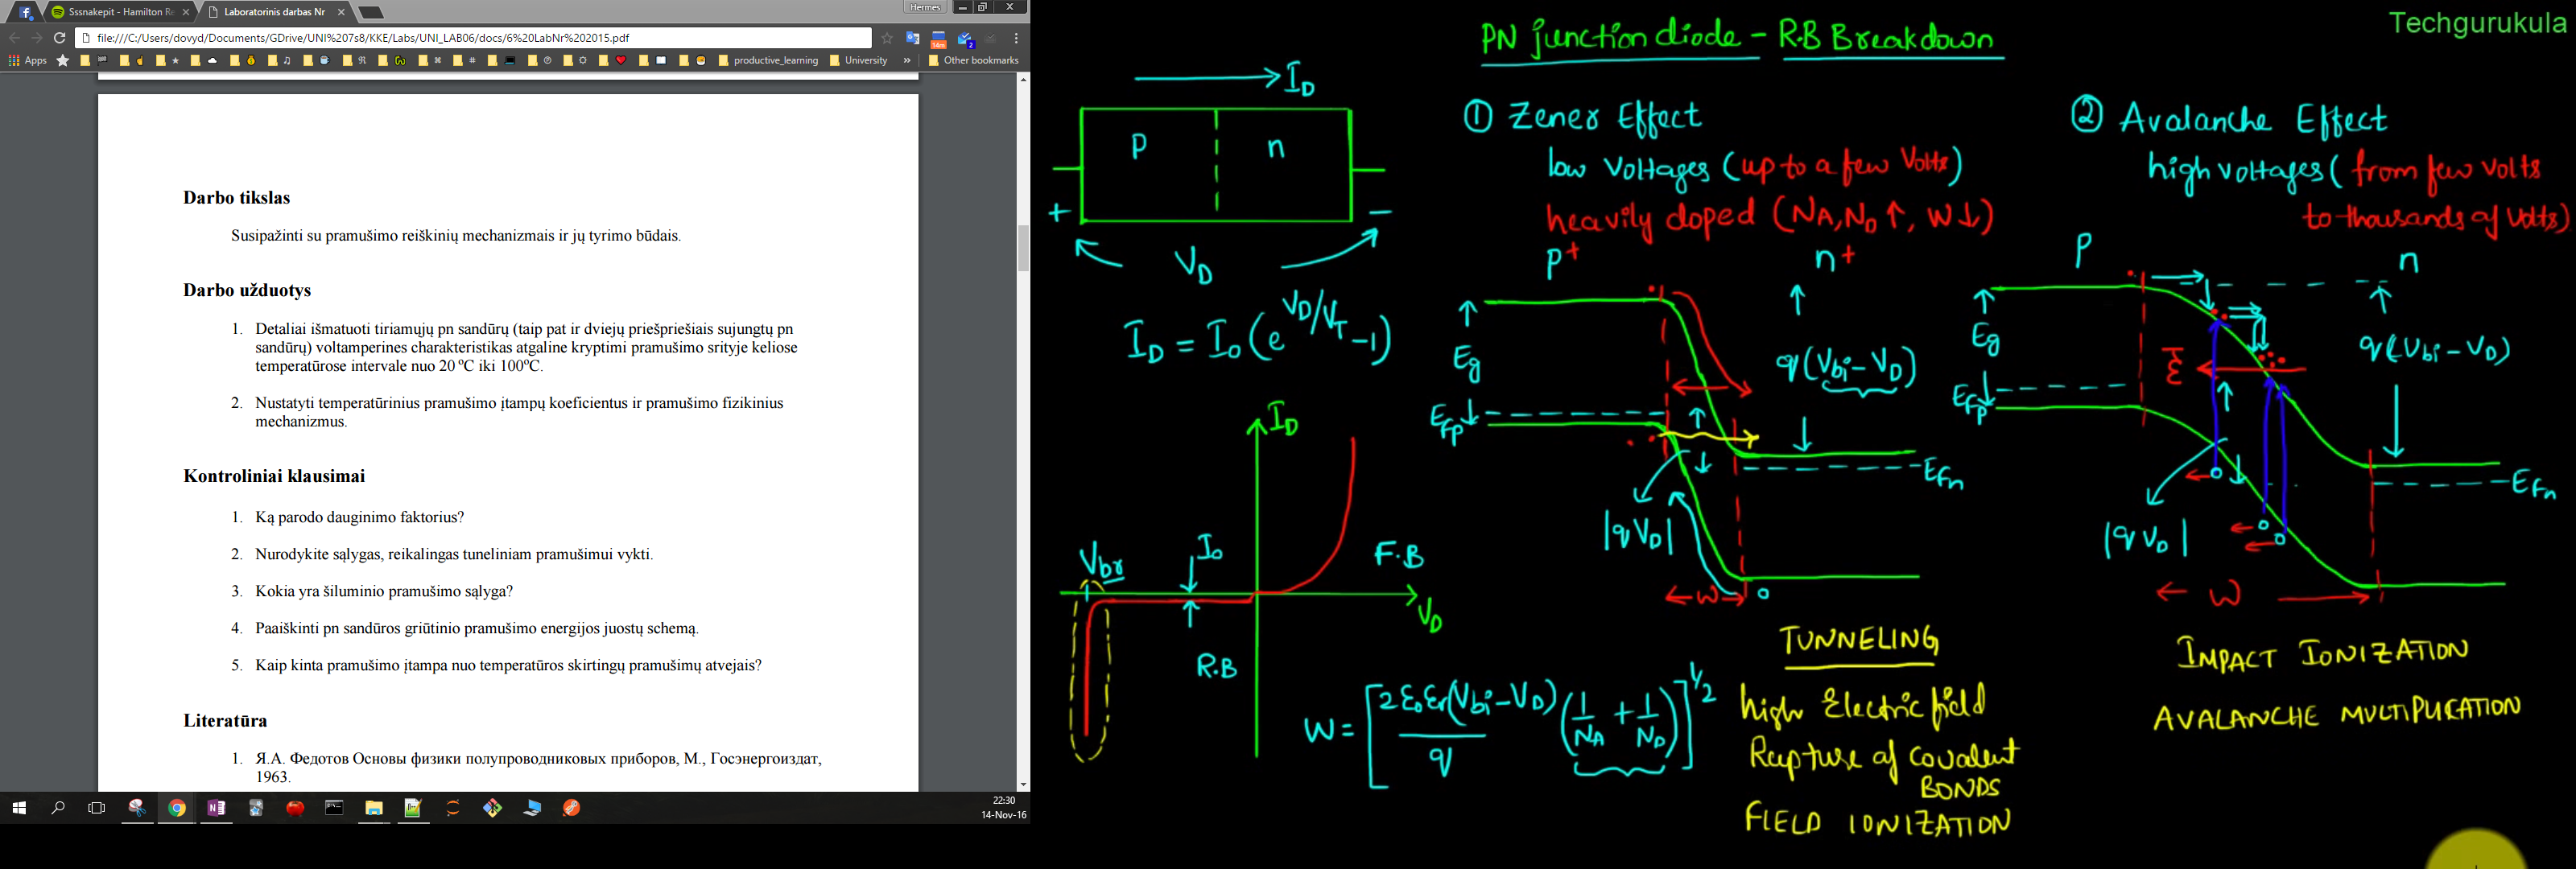 Sssnakepit - Hamilton Re
Laboratorinis darbas Nr
Hermes
file:///C:/Users/dovyd/Documents/GDrive/UNI%207s8/KKE/Labs/UNI_LAB06/docs/6%20LabNr%202015.pdf
Apps
productive_learning
University
»
Other bookmarks
Darbo tikslas
Susipažinti su pramušimo reiškinių mechanizmais ir jų tyrimo būdais.
Darbo užduotys
1. Detaliai išmatuoti tiriamųjų pn sandūrų (taip pat ir dviejų priešpriešiais sujungtų pn
sandūrų) voltamperines charakteristikas atgaline kryptimi pramušimo srityje keliose
temperatūrose intervale nuo 20 ºC iki 100ºC.
2. Nustatyti temperatūrinius pramušimo įtampų koeficientus ir pramušimo fizikinius
mechanizmus.
Kontroliniai klausimai
1. Ką parodo dauginimo faktorius?
2. Nurodykite sąlygas, reikalingas tuneliniam pramušimui vykti.
3. Kokia yra šiluminio pramušimo sąlyga?
4. Paaiškinti pn sandūros griūtinio pramušimo energijos juostų schemą.
5. Kaip kinta pramušimo įtampa nuo temperatūros skirtingų pramušimų atvejais?
Literatūra
1. Я.А. Федотов Основы физики полупроводниковых приборов, М., Госэнергоиздат,
1963.
22:30
14-Nov-16
Techgurukula
PN junction diode - R.B Breakdown
I_D
P n
+ −
V_D
I_D = I_0 (e^{V_D/V_T} -1)
I_D
V_br
I_0
F.B
V_D
R.B
W = [2ε_0ε_r(V_bi-V_D)/q (1/N_A + 1/N_D)]^{1/2}
① Zener Effect
low voltages (up to a few Volts)
heavily doped (N_A, N_D ↑, W↓)
P+ n+
E_g
q(V_bi-V_D)
E_Fp
E_Fn
|qV_D|
W
TUNNELING
high Electric field
Rupture of covalent
BONDS
FIELD IONIZATION
② Avalanche Effect
high voltages (from few volts
to thousands of volts)
P n
E_g
q(V_bi-V_D)
E
E_Fp
E_Fn
|qV_D|
W
IMPACT IONIZATION
AVALANCHE MULTIPLICATION